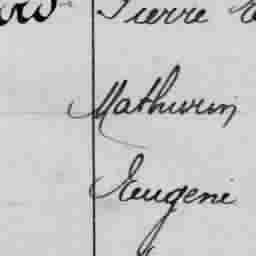 Pierre
Mathurin
Eugene